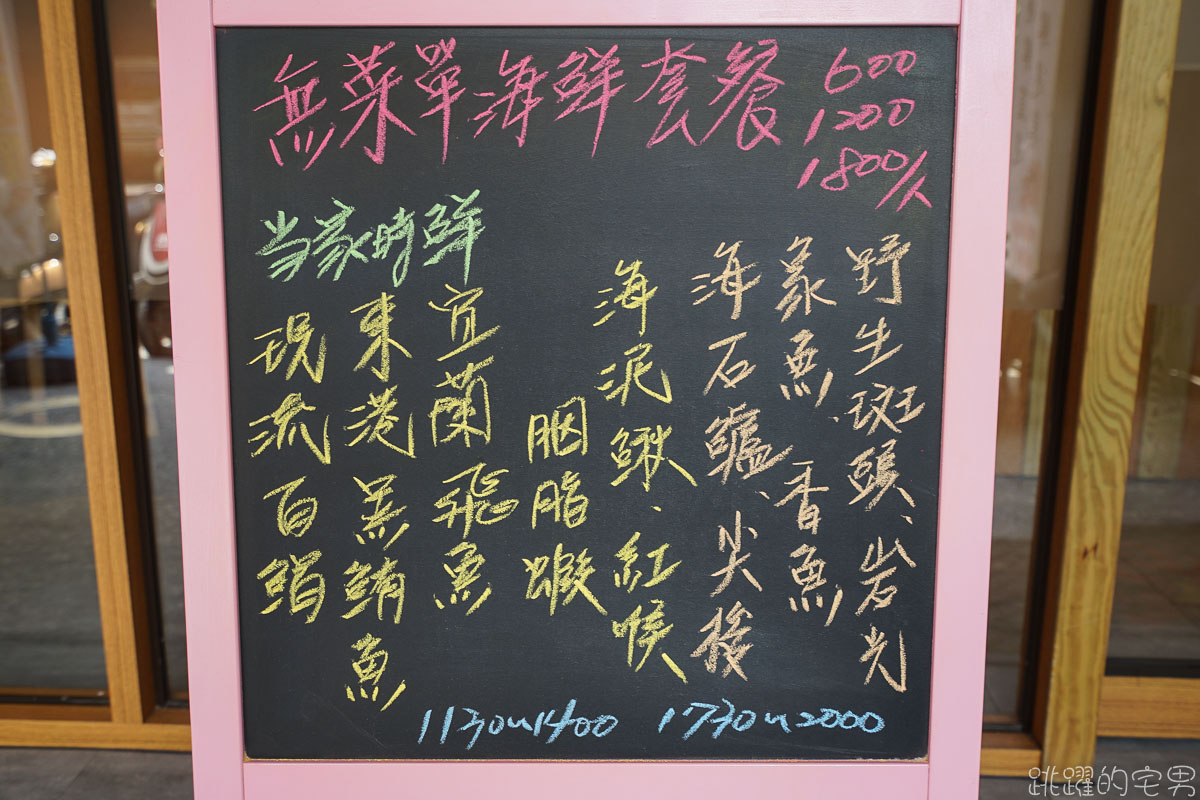 無菜單海鮮套餐 600
1200
1800/人
当家時鮮
野生斑頭、岩光
象魚、香魚
海石鱸、尖梭
海泥鰍、紅喉
胭脂蝦
宜蘭飛魚
東港黑鮪魚
現流白鯧
1130~1400 1730~2000
跳躍的宅男